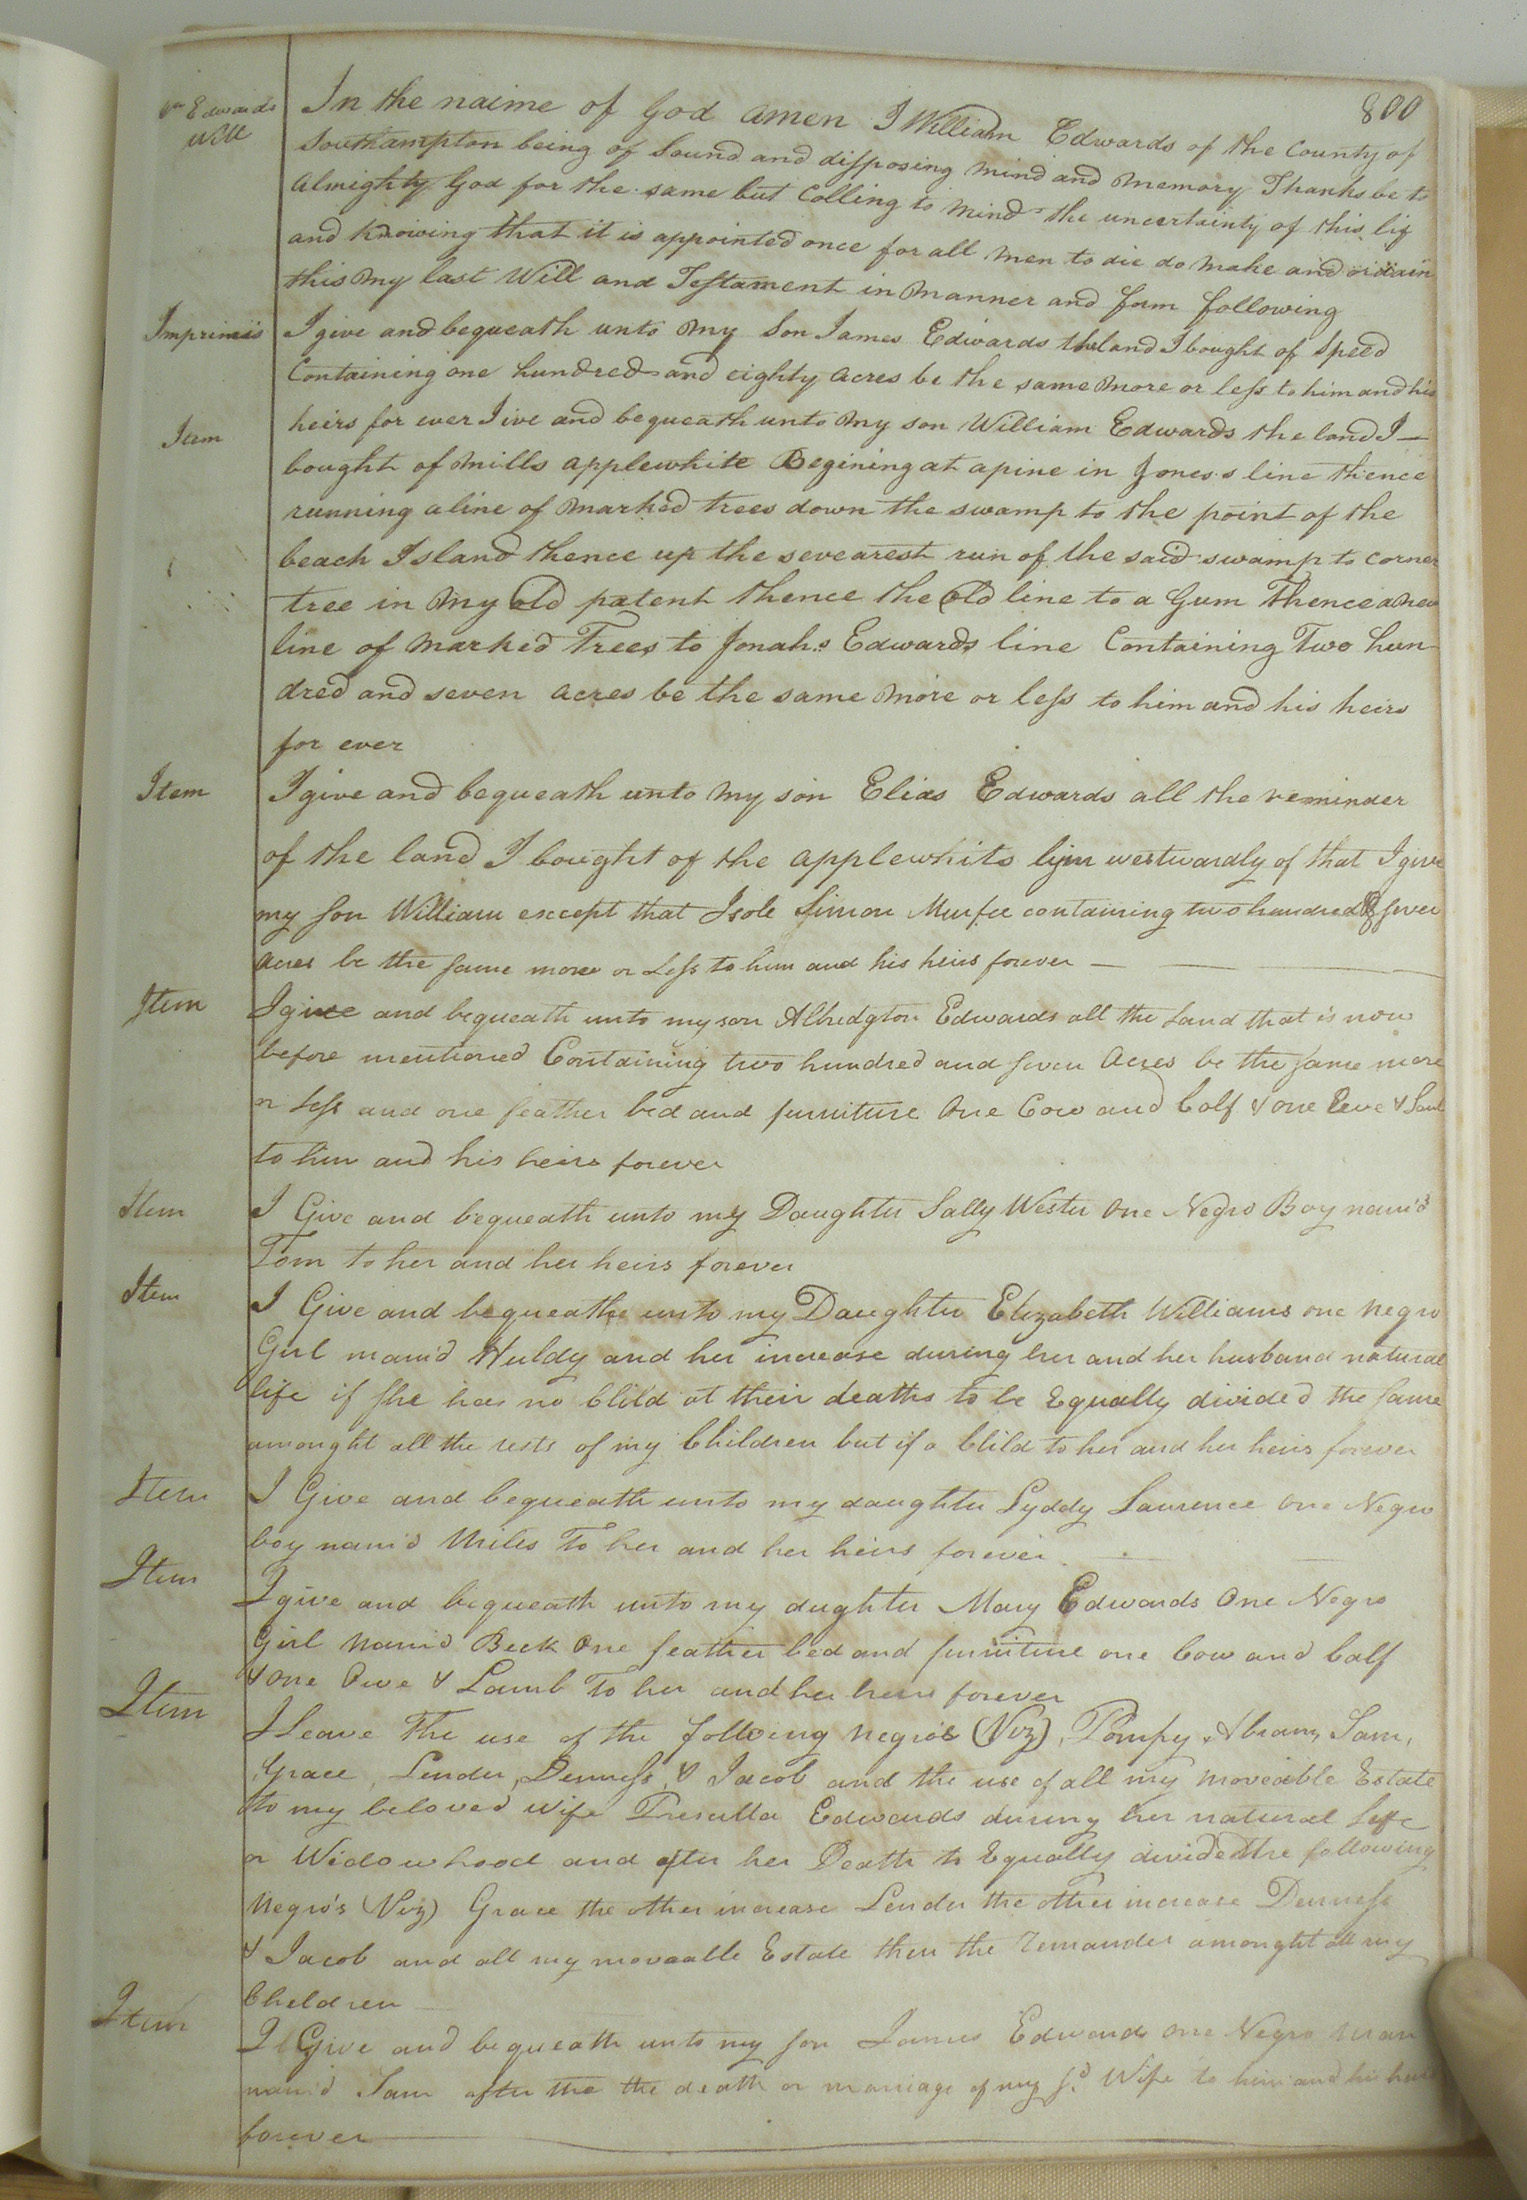 800
Wm Edwards
Will
In the naime of God amen I William Edwards of the County of
Southampton being of Sound and disposing mind and memory Thanks be to
almighty God for the same but Colling to mind the uncertainty of this lif
and knowing that it is appointed once for all men to die do make and ordain
this my last Will and Testament in manner and form following
Imprimis I give and bequeath unto my Son James Edwards the land I bought of Speed
Containing one hundred and eighty acres be the same more or less to him and his
Item heirs for ever I ive and bequeath unto my son William Edwards the land I
bought of mills applewhite Begining at a pine in Jones's line thence
running a line of marked trees down the swamp to the point of the
beach Island thence up the sevearest run of the said swamp to corner
tree in my old patent thence the old line to a Gum Thence a new
line of marked Trees to Jonah.s Edwards line Containing Two hun
dred and seven acres be the same more or less to him and his heirs
for ever
Item I give and bequeath unto my son Elias Edwards all the reminder
of the land I bought of the applewhits westwardly of that I give
my son William except that I sole Simon Murfee containing two hundred & seven
Acres be the same more or Less to him and his heirs forever
Item I give and bequeath unto my son Albridgton Edwards all the Land that is now
before mentioned Containing two hundred and seven Acres be the same more
or Less and one feather bed and furniture One Cow and Calf & one Ewe &
to him and his heirs forever
Item I Give and bequeath unto my Daughter Sally Wester One Negro Boy nam'd
Tom to her and her heirs forever
Item I Give and bequeathe unto my Daughter Elizabeth Williams one negro
Girl nam'd Huldy and her increase during her and her husband natural
life if she has no Clild at their deaths to be Equally divided the same
amonght all the rests of my Children but if a Clild to her and her heirs forever
Item I Give and bequeath unto my daughter Lyddy Laurence One Negro
boy nam'd Miles To her and her heirs forever
Item I give and bequeath unto my dughter Mary Edwards One Negro
Girl Nam'd Beck One feather bed and furniture one Cow and Calf
& one Owe & Lamb To her and her heirs forever
Item I Leave The use of the following negro's (Viz), Pompy, Abram, Sam,
Grace, Lender, Denness, & Jacob and the use of all my moveable Estate
to my beloved Wife Prescilla Edwards during her natural Life
or Widowhood and after her Death to Equally divided the following
Negro's (Viz) Grace the other increase Lender the other increase Denness
& Jacob and all my moveable Estate then the Remander amonght all my
Children
Item I Give and bequeath unto my son James Edwards one Negro man
nam'd Sam after the the death or marriage of my sd. Wife to him and his heirs
forever